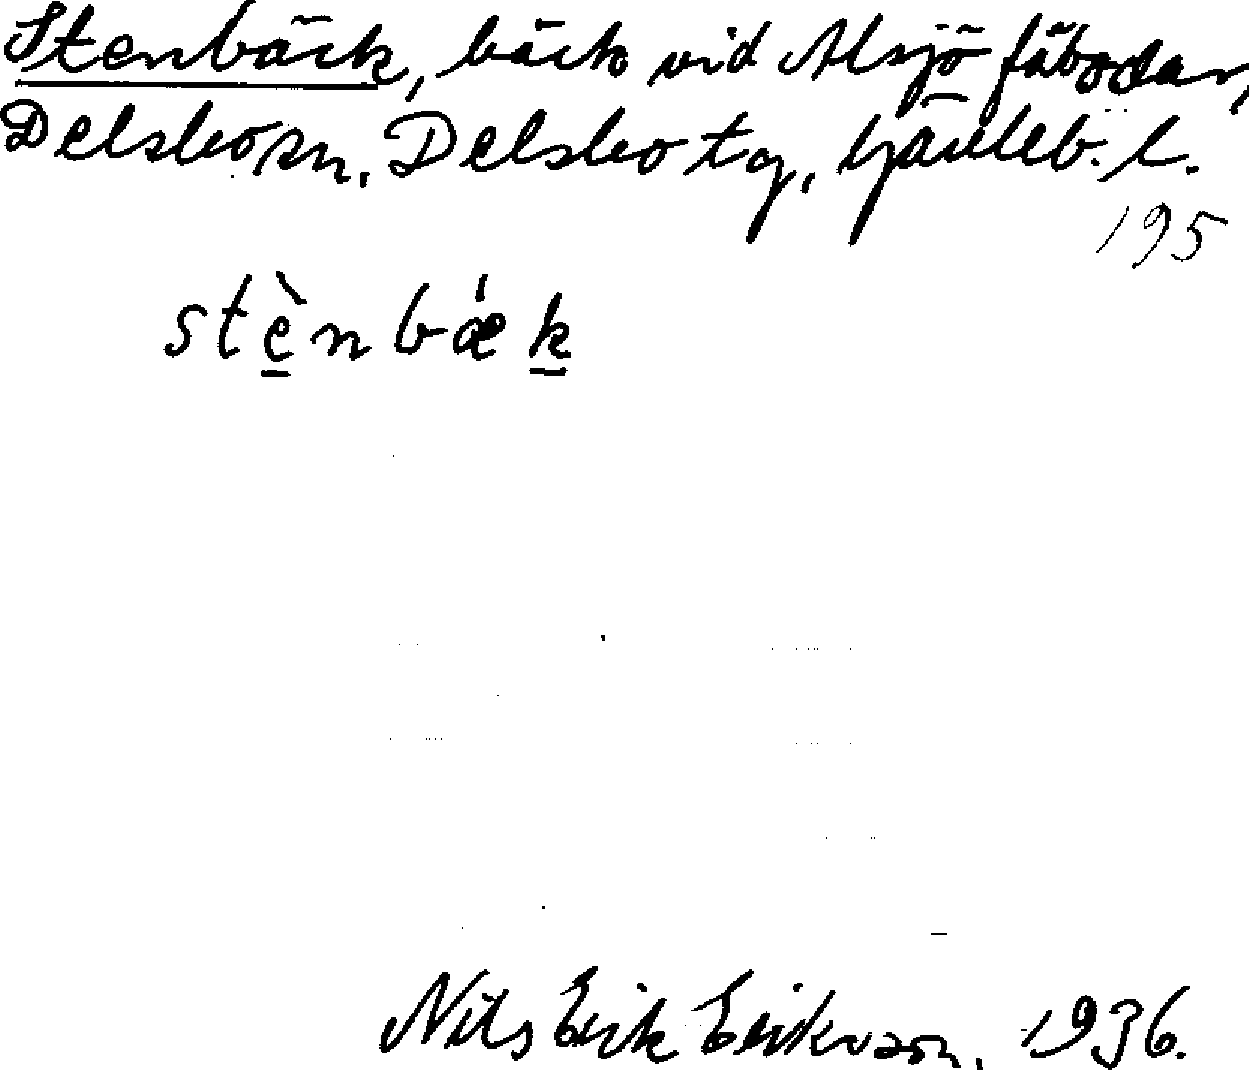 Stenbäck, bäck vid Alsjö fäbodar,
Delsbo sn, Delsbo tg, Gävleb. l.
195
stè̲nbǽk̲
Nils Erik Eriksson, 1936.